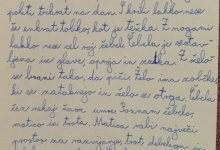 polti, trikrat na dan. I krili lahko nese
še enkrat toliko, kot je težka. Z nogami
lahko nese cel roj žebel. Čebela je sestav-
ljena iz glave, oprsja in zadka. Z želo-
se brani tako, da piči. Želo ima zobčke
ki se zataknejo in želo se otrga. Čebela
čez nekaj časa umre. Poznamo čebelo,
matico in trota. Matica rabi največji
prostor za razvijanje, trot debelega in